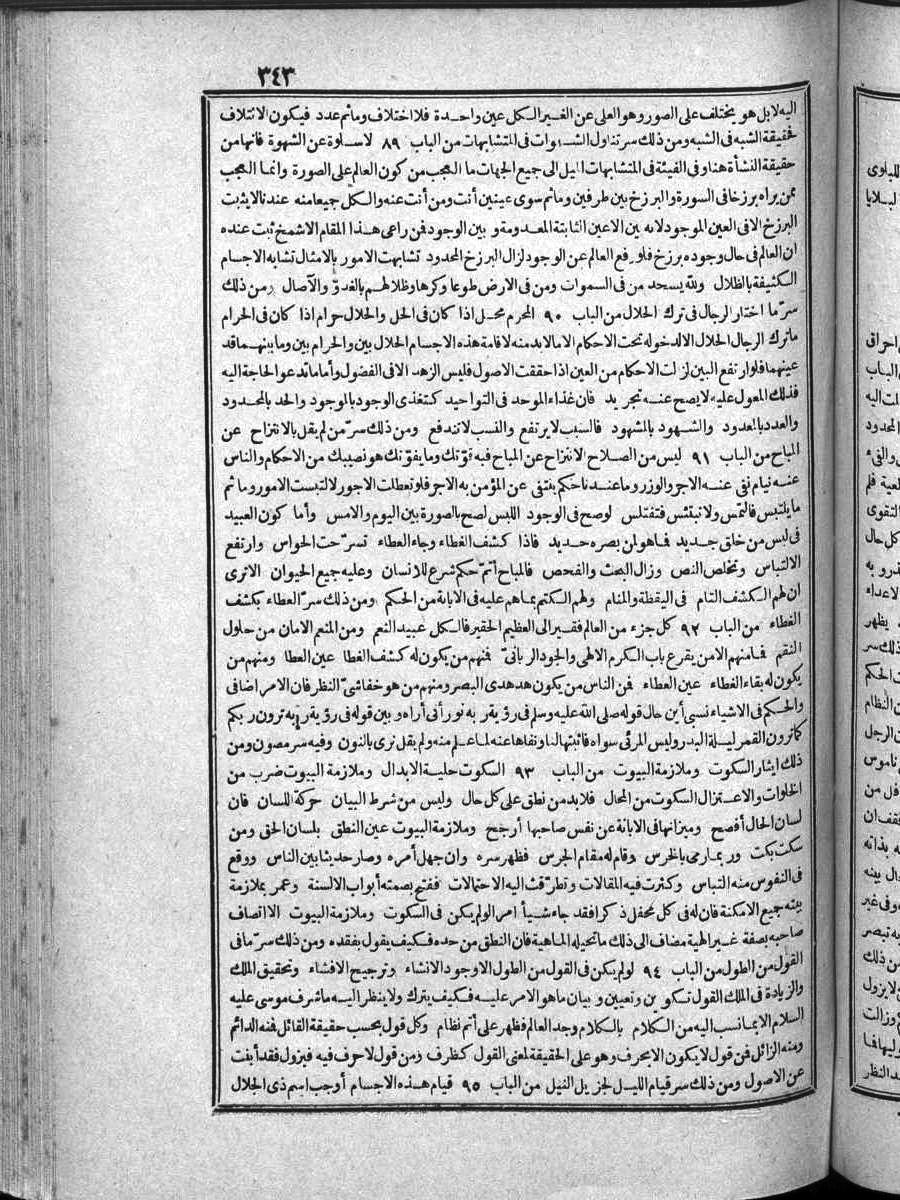 ٣٤٣
اليه لا بل هو يختلف على الصور وهو العلى عن الغير الكل عين واحدة فلا اختلاف وما ثم عدد فيكون الائتلاف
حقيقة الشبه فى الشبه ومن ذلك سر تناول الشهوات فى المتشابهات من الباب ٨٩ لاسلوة عن الشهوة فانها من
حقيقة النشأة هنا وفى الفيئة فى المتشابهات الميل الى جميع الجهات ما العجب من كون العالم على الصورة وانما العجب
ممن يراه برزخا فى السورة والبرزخ بين طرفين وما ثم سوى عينين أنت ومن أنت عنه والكل جميعا منه عندنا لا يثبت
البرزخ الا فى العين الموجود لانه بين الاعين الثابتة المعدومة و بين الوجود فمن راعى هذا المقام الاشمخ ثبت عنده
ان العالم فى حال وجوده برزخ فلو رفع العالم عن الوجود لزال البرزخ المحدود تشابهت الامور بالامثال تشابه الاجسام
الكثيفة بالظلال ولله يسجد من فى السموات ومن فى الارض طوعا وكرها وظلالهم بالغدو والآصال ومن ذلك
سر ما اختار الرجال فى ترك الحلال من الباب ٩٠ المحرم محل اذا كان فى الحل والحلال حرام اذا كان فى الحرام
ما ترك الرجال الحلال الا لدخوله تحت الاحكام الا ما لابد منه لاقامة هذه الاجسام الحلال بين والحرام بين وما بينهما قد
عينهما فلو ارتفع البين لزالت الاحكام من العين اذا حققت الاصول فليس الزهد الا فى الفضول وأما ما تدعو الحاجة اليه
فذلك المعول عليه لا يصح عنه تجريد فان غذاء الموحد فى التواحيد كتغذى الوجود بالموجود والحد بالمحدود
والعدد بالمعدود والشهود بالمشهود فالسبب لا يرتفع والنسب لا تندفع ومن ذلك سر من لم يقل بالانتزاح عن
المباح من الباب ٩١ ليس من الصلاح الانتزاح عن المباح فبه قوتك وما يفوتك هو نصيبك من الاحكام والناس
عنه نيام نفى عنه الاجر والوزر وما عندنا حكم ينتفى عن المؤمن به الاجر فلو تعطلت الاجور لالتبست الامور وما ثم
ما يلتبس فالتمس ولا تبتئس فتفتلس لوصح فى الوجود اللبس لصح بالصورة بين اليوم والامس وأما كون العبيد
فى لبس من خلق جديد فما هو لمن بصره حديد فاذا كشف الغطاء وجاء العطاء تسرّحت الحواس وارتفع
الالتباس وتخلص النص وزال البحث والفحص فالمباح أتم حكم شرع للانسان وعليه جميع الحيوان الا ترى
ان لهم الكشف التام فى اليقظة والمنام ولهم الكتم بما هم عليه فى الابانة من الحكم ومن ذلك سرّ العطاء بكشف
الغطاء من الباب ٩٢ كل جزء من العالم فقير الى العظيم الحقير فالكل عبيد النعم ومن المنعم الامان من حلول
النقم فما منهم الا من يقرع باب الكرم الالهى والجود الربانىّ فمنهم من يكون له كشف الغطا عين العطا ومنهم من
يكون له بقاء الغطاء عين العطاء فمن الناس من يكون هدهدى البصر ومنهم من هو خفاشىّ النظر فان الامر اضافى
والحكم فى الاشياء نسبى أين حال قوله صلى الله عليه وسلم فى رؤية ربه نور أنى أراه و بين قوله فى رؤيتنا ربه ترون ربكم
كما ترون القمر ليلة البدر وليس المرئى سواه فاثبتها لنا ونفاها عنه لما علم منه ولم يقل نرى بالنون وفيه سر مصون ومن
ذلك ايثار السكوت وملازمة البيوت من الباب ٩٣ السكوت حلية الابدال وملازمة البيوت ضرب من
الخلوات والاعتزال السكوت من المحال فلابد من نطق على كل حال وليس من شرط البيان حركة اللسان فان
لسان الحال أفصح وميزانها فى الابانة عن نفس صاحبها أرجح وملازمة البيوت عين النطق بلسان الحق ومن
سكت بكت وربما رمى بالخرس وقام له مقام الجرس فظهر سره وان جهل أمره وصار حديثا بين الناس ووقع
فى النفوس منه التباس وكثرت فيه المقالات وتطرّقت اليه الاحتمالات ففتح بصمته أبواب الالسنة وعمر بملازمة
بيته جميع الامكنة فان له فى كل محفل ذكرا فقد جاء شيأ امرا لولم يكن فى السكوت وملازمة البيوت الا اتصاف
صاحبه بصفة غير الهية مضاف الى ذلك ما تحيله الماهية فان النطق من حده فكيف يقول بفقده ومن ذلك سرّ ما فى
القول من الطول من الباب ٩٤ لولم يكن فى القول من الطول الا وجود الانشاء وترجيح الافشاء وتحقيق الملك
والزيادة فى الملك القول تكوين وتعيين و بيان ما هو الامر عليه فكيف يترك ولا ينظر اليه ما شرف موسى عليه
السلام الا بما نسب اليه من الكلام بالكلام وجد العالم فظهر على أتم نظام وكل قول بحسب حقيقة القائل فمنه الدائم
ومنه الزائل فمن قول لا يكون الا بحرف وهو على الحقيقة لمعنى القول كظرف ومن قول لا حرف فيه فيزول فقد أبنت
عن الاصول ومن ذلك سر قيام الليل لجزيل النيل من الباب ٩٥ قيام هذه الاجسام أوجب اسم ذى الجلال